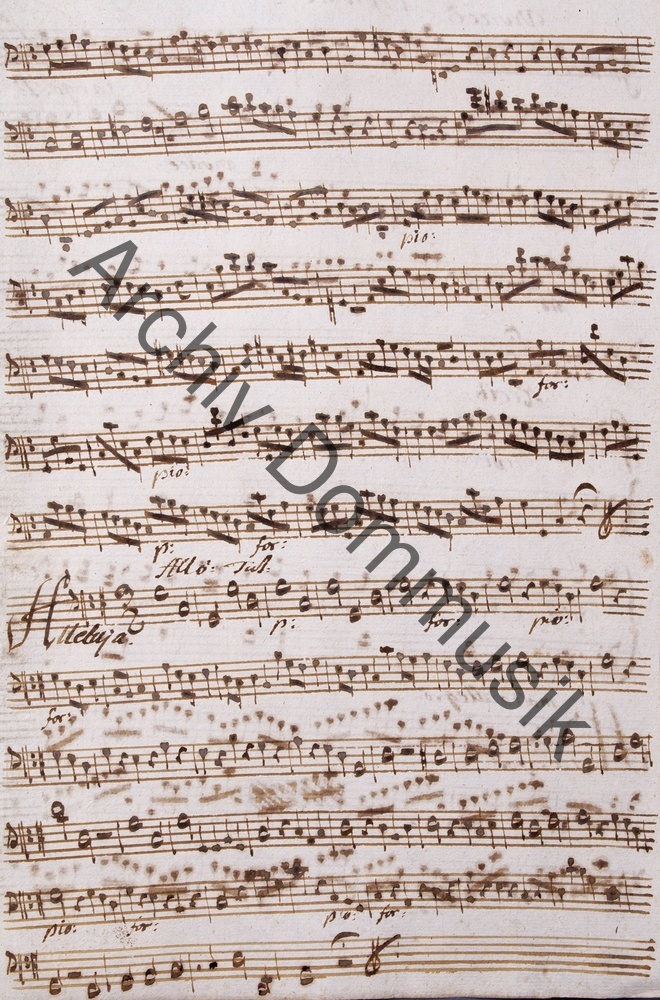 pio:
for:
pio:
p: for:
All⁰: Tut:
Alleluja.
p: for: pio:
for:
pio: for: pio: for:
Archiv Dommusik